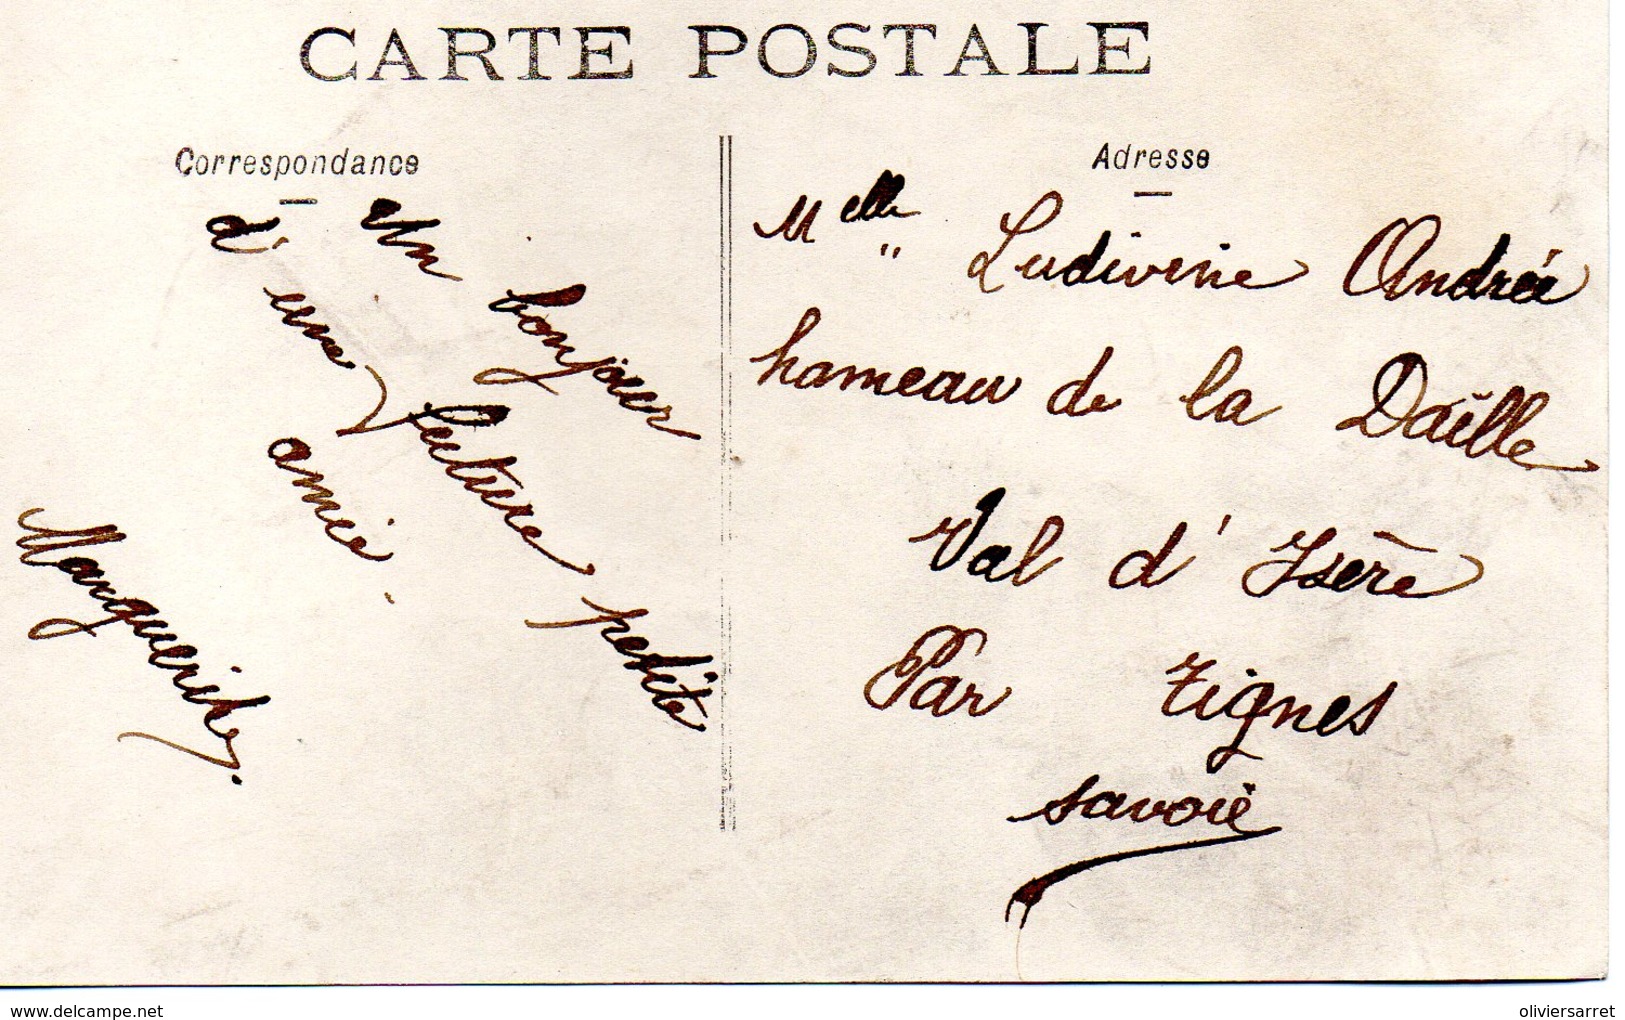 CARTE POSTALE
Correspondance
un bonjour
d'une future petite
amie.
Marguerite.
Adresse
Melle Ludivine Andrée
hameau de la Daille
Val d'Isère
Par Tignes
savoie
www.delcampe.net
oliviersarret